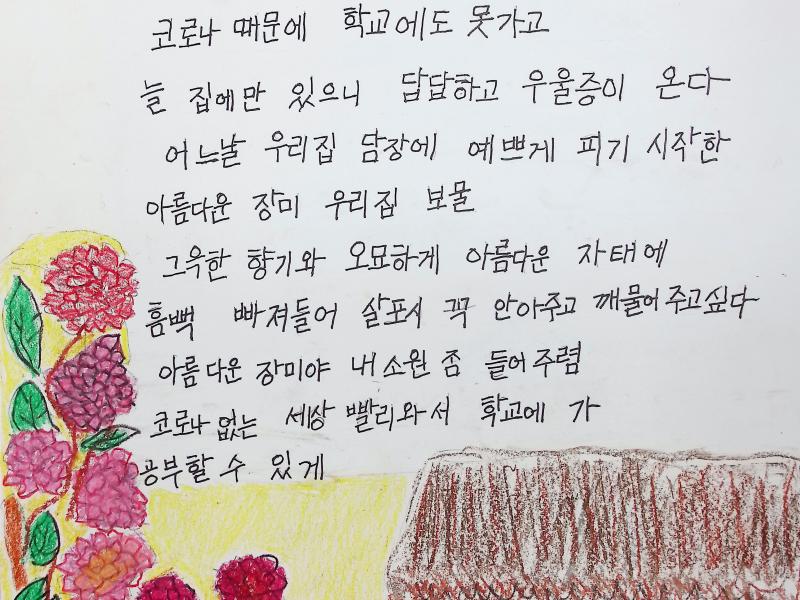 코로나 때문에 학교에도 못가고
늘 집에만 있으니 답답하고 우울증이 온다
어느날 우리집 담장에 예쁘게 피기 시작한
아름다운 장미 우리집 보물
그윽한 향기와 오묘하게 아름다운 자태에
흠뻑 빠져들어 살포시 꼭 안아주고 깨물어 주고싶다
아름다운 장미야 내 소원 좀 들어주렴
코로나 없는 세상 빨리와서 학교에 가
공부할 수 있게